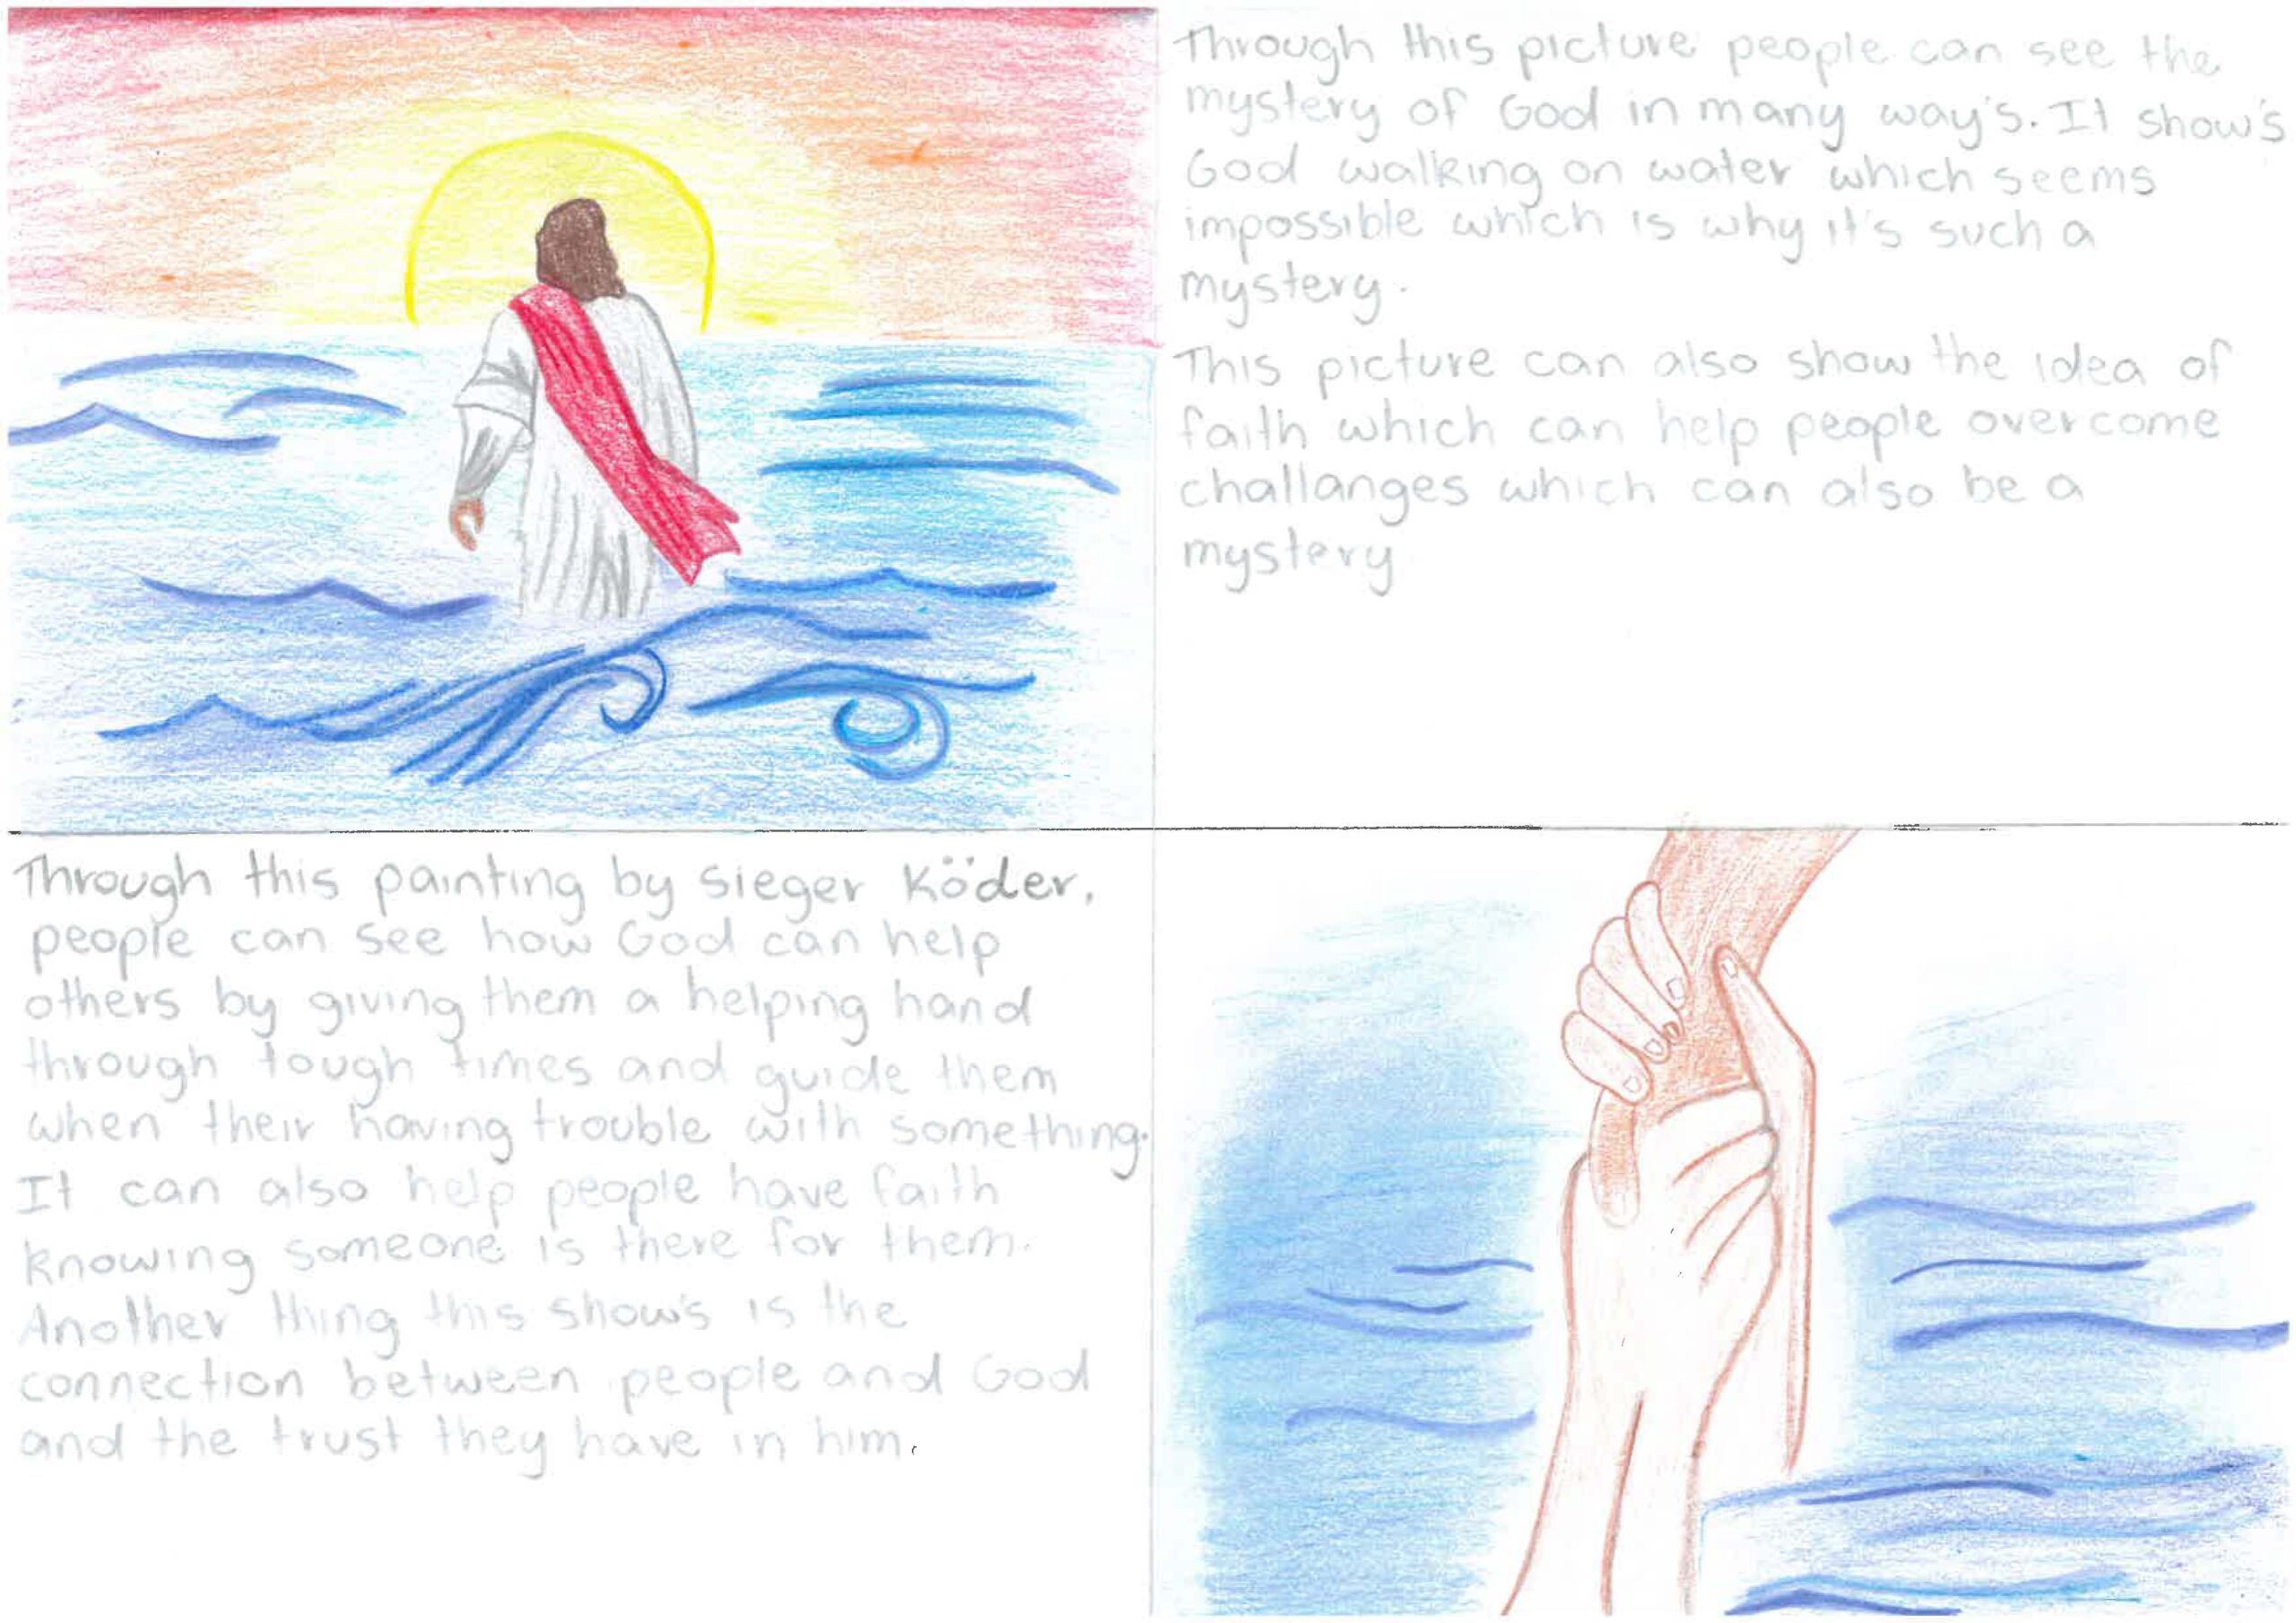 Through this picture people can see the
mystery of God in many way's. It show's
God walking on water which seems
impossible which is why it's such a
mystery.
This picture can also show the idea of
faith which can help people overcome
challanges which can also be a
mystery
Through this painting by Sieger Köder,
people can see how God can help
others by giving them a helping hand
through tough times and guide them
when their having trouble with something.
It can also help people have faith
knowing someone is there for them.
Another thing this show's is the
connection between people and God
and the trust they have in him.